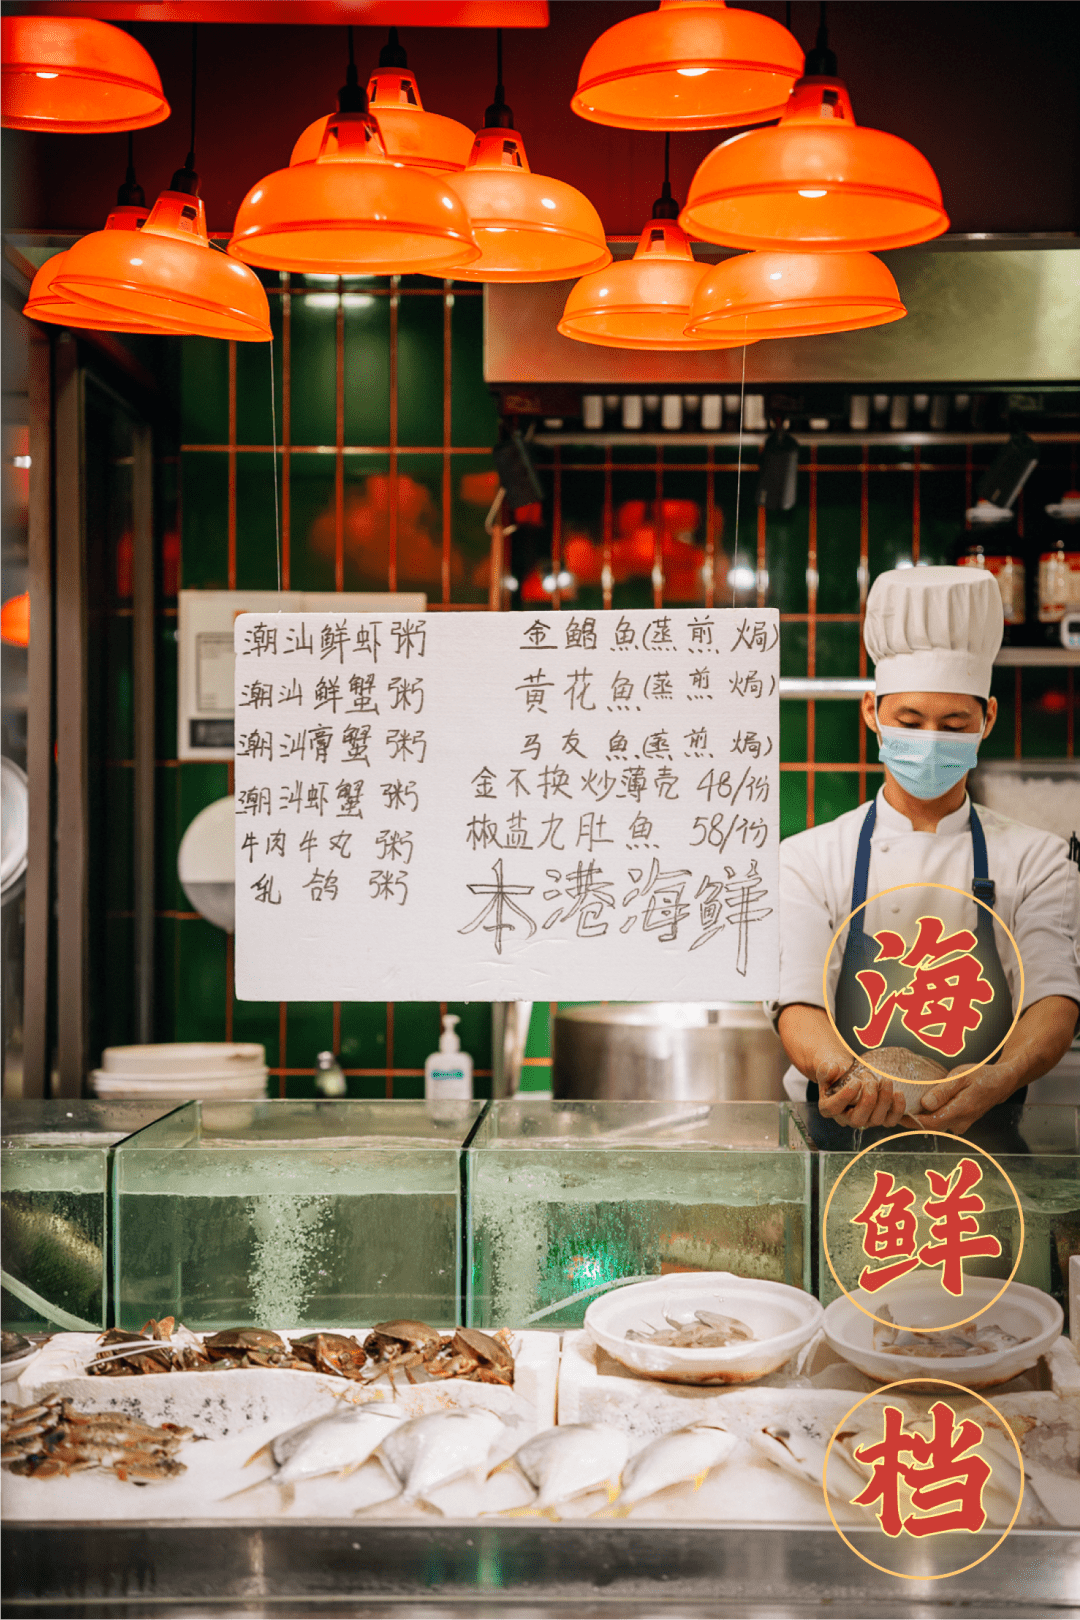 潮汕鲜虾粥
潮汕鲜蟹粥
潮汕膏蟹粥
潮汕虾蟹粥
牛肉牛丸粥
乳鸽粥
金鲳魚(蒸煎焗)
黄花魚(蒸煎焗)
马友魚(蒸煎焗)
金不换炒薄壳 48/份
椒盐九肚魚 58/份
本港海鲜
海
鲜
档